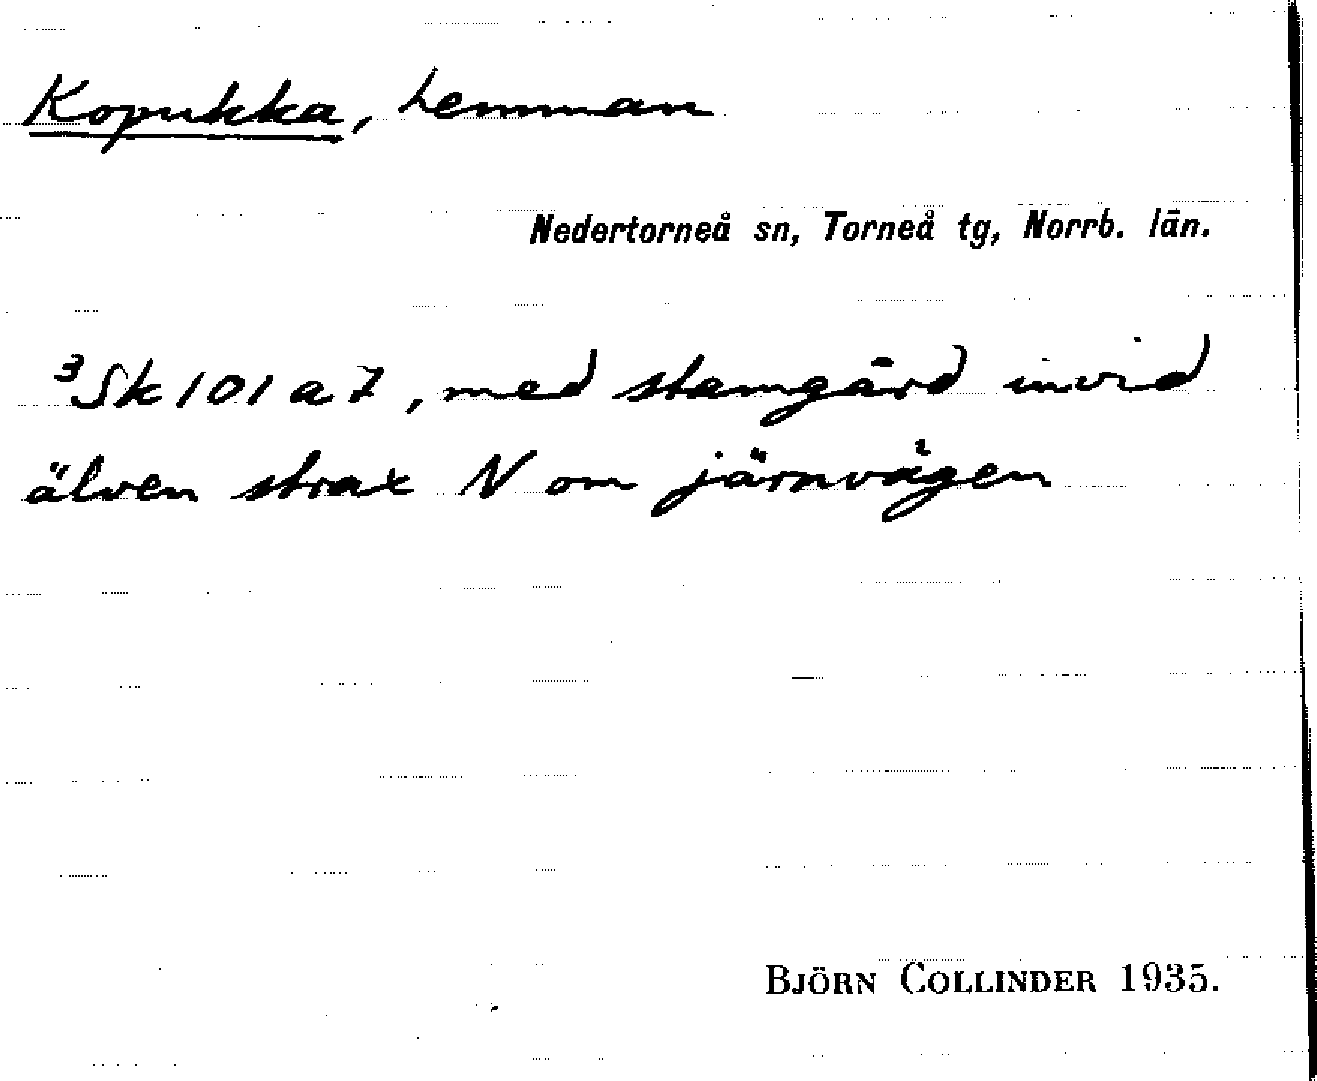 Kopukka, hemman
Nedertorneå sn, Torneå tg, Norrb. län.
³Sk 101 a 7, med stamgård invid
älven strax N om järnvägen
BJÖRN COLLINDER 1935.